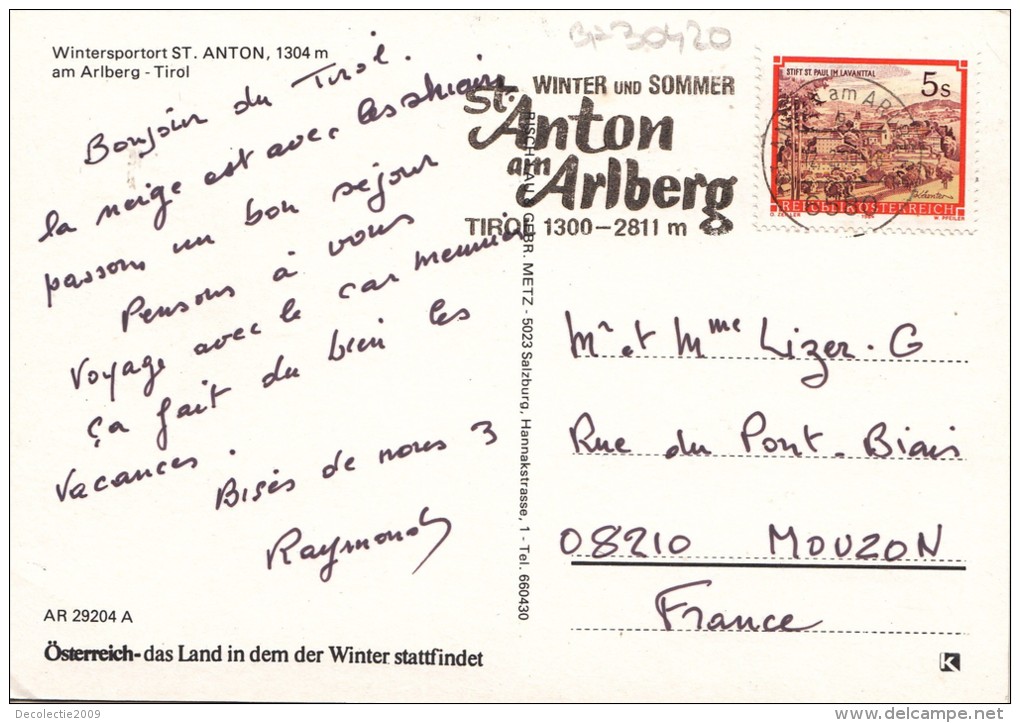 Wintersportort ST. ANTON, 1304 m
am Arlberg - Tirol
Bonjoir du Tirol.
la neige est avec les skieurs
passons un bon séjour
Pensons à vous
Voyage avec le car meunier
ça fait du bien les
vacances.
Bises de nous 3
Raymond
AR 29204 A
Österreich - das Land in dem der Winter stattfindet
RISCH-LAU GEBR. METZ - 5023 Salzburg, Hannakstrasse, 1 - Tel. 660430
BP30420
WINTER UND SOMMER
St. Anton
am Arlberg
TIROL 1300-2811 m
STIFT ST. PAUL IM LAVANTTAL
5 S
REPUBLIK ÖSTERREICH
O. ZEILLER 1984 W. PFEILER
Mr et Mme Lizer. G
Rue du Pont. Biais
08210 MOUZON
France
K
Decolectie2009
delcampe.net